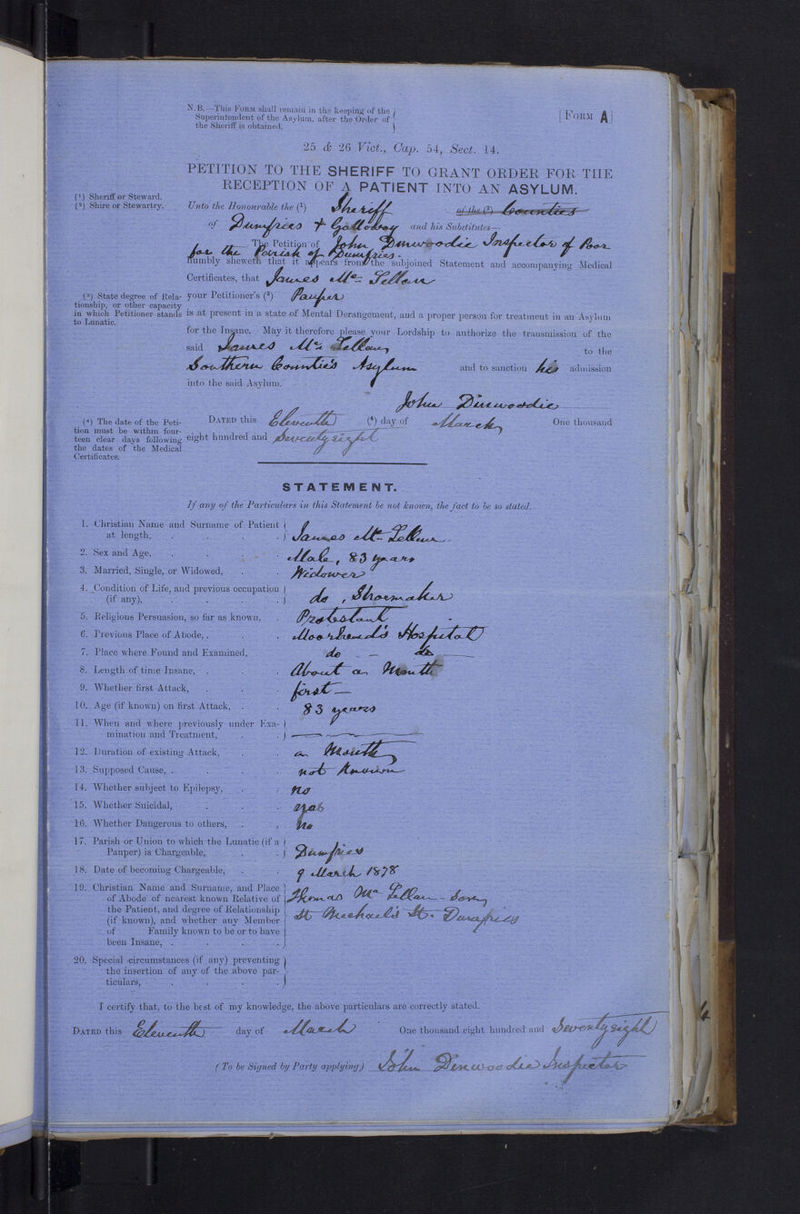 N.B.—This Form shall remain in the keeping of the
Superintendent of the Asylum, after the Order of
the Sheriff is obtained.
[Form A]
25 & 26 Vict., Cap. 54, Sect. 14.
PETITION TO THE SHERIFF TO GRANT ORDER FOR THE
RECEPTION OF A PATIENT INTO AN ASYLUM.
(¹) Sheriff or Steward.
(²) Shire or Stewartry.
Unto the Honourable the (¹) Sheriff of the (²) Counties
of Dumfries & Galloway and his Substitutes—
The Petition of John Dinwoodie Inspector of Poor
for the Parish of Dumfries.
humbly sheweth that it appears from the subjoined Statement and accompanying Medical
Certificates, that James Mc Lellan
(³) State degree of Rela-
tionship, or other capacity
in which Petitioner stands
to Lunatic.
your Petitioner's (³) Pauper
is at present in a state of Mental Derangement, and a proper person for treatment in an Asylum
for the Insane. May it therefore please your Lordship to authorize the transmission of the
said James Mc Lellan to the
Southern Counties Asylum and to sanction his admission
into the said Asylum.
John Dinwoodie
(⁴) The date of the Peti-
tion must be within four-
teen clear days following
the dates of the Medical
Certificates.
Dated this Eleventh (⁴) day of March One thousand
eight hundred and Seventy eight
STATEMENT.
If any of the Particulars in this Statement be not known, the fact to be so stated.
1. Christian Name and Surname of Patient
at length, James Mc Lellan
2. Sex and Age, Male, 83 years
3. Married, Single, or Widowed, Widower
4. Condition of Life, and previous occupation
(if any), do, Shoemaker
5. Religious Persuasion, so far as known, Protestant
6. Previous Place of Abode, Moorhead's Hospital
7. Place where Found and Examined, do — do
8. Length of time Insane, About a Month
9. Whether first Attack, first —
10. Age (if known) on first Attack, 83 years
11. When and where previously under Exa-
mination and Treatment, —
12. Duration of existing Attack, a Month
13. Supposed Cause, not Known
14. Whether subject to Epilepsy, no
15. Whether Suicidal, yes
16. Whether Dangerous to others, no
17. Parish or Union to which the Lunatic (if a
Pauper) is Chargeable, Dumfries
18. Date of becoming Chargeable, 9 March 1878
19. Christian Name and Surname, and Place
of Abode of nearest known Relative of
the Patient, and degree of Relationship
(if known), and whether any Member
of Family known to be or to have
been Insane,
Thomas Mc Lellan - Son
St Michael's St. Dumfries
20. Special circumstances (if any) preventing
the insertion of any of the above par-
ticulars,
I certify that, to the best of my knowledge, the above particulars are correctly stated.
Dated this Eleventh day of March One thousand eight hundred and Seventy eight
(To be Signed by Party applying) John Dinwoodie Inspector